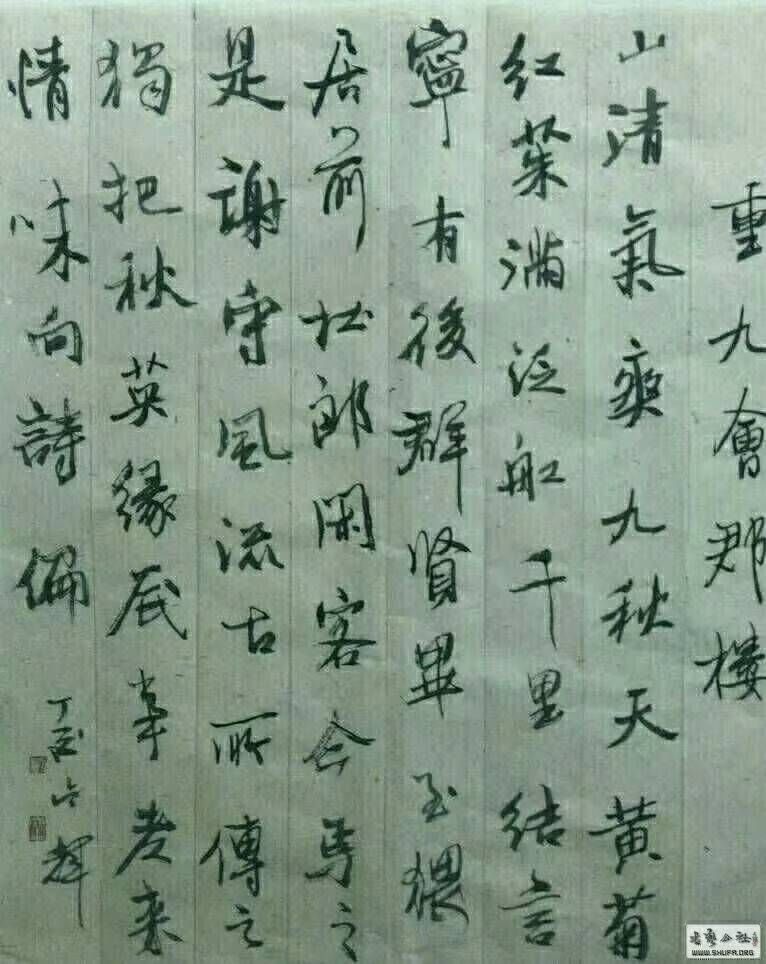 重九會郡樓
山清氣爽九秋天黄菊
红茱滿泛船千里結言
寧有後群賢畢至猥
居前杜郎閑客今焉之
是謝守風流古所傳之
獨把秋英緣底事老来
情味向詩偏
丁酉 輝
老藝公社
WWW.SHUFA.ORG